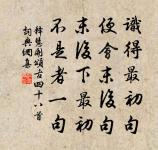 識得最初句
便會末後句
末後下最初
不是者一句
釋慧開頌古四十八首
詞典網集